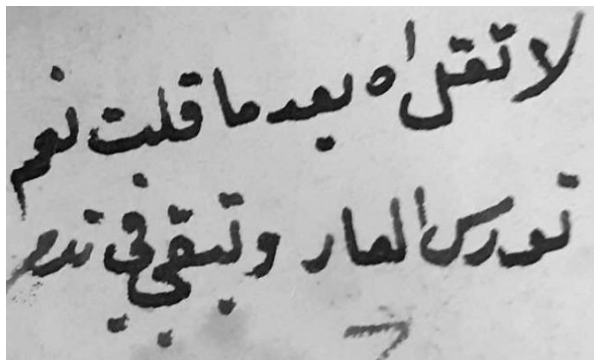 لا تقل اه بعد ما قلت نعم
تورس العار وتبقي في ندم